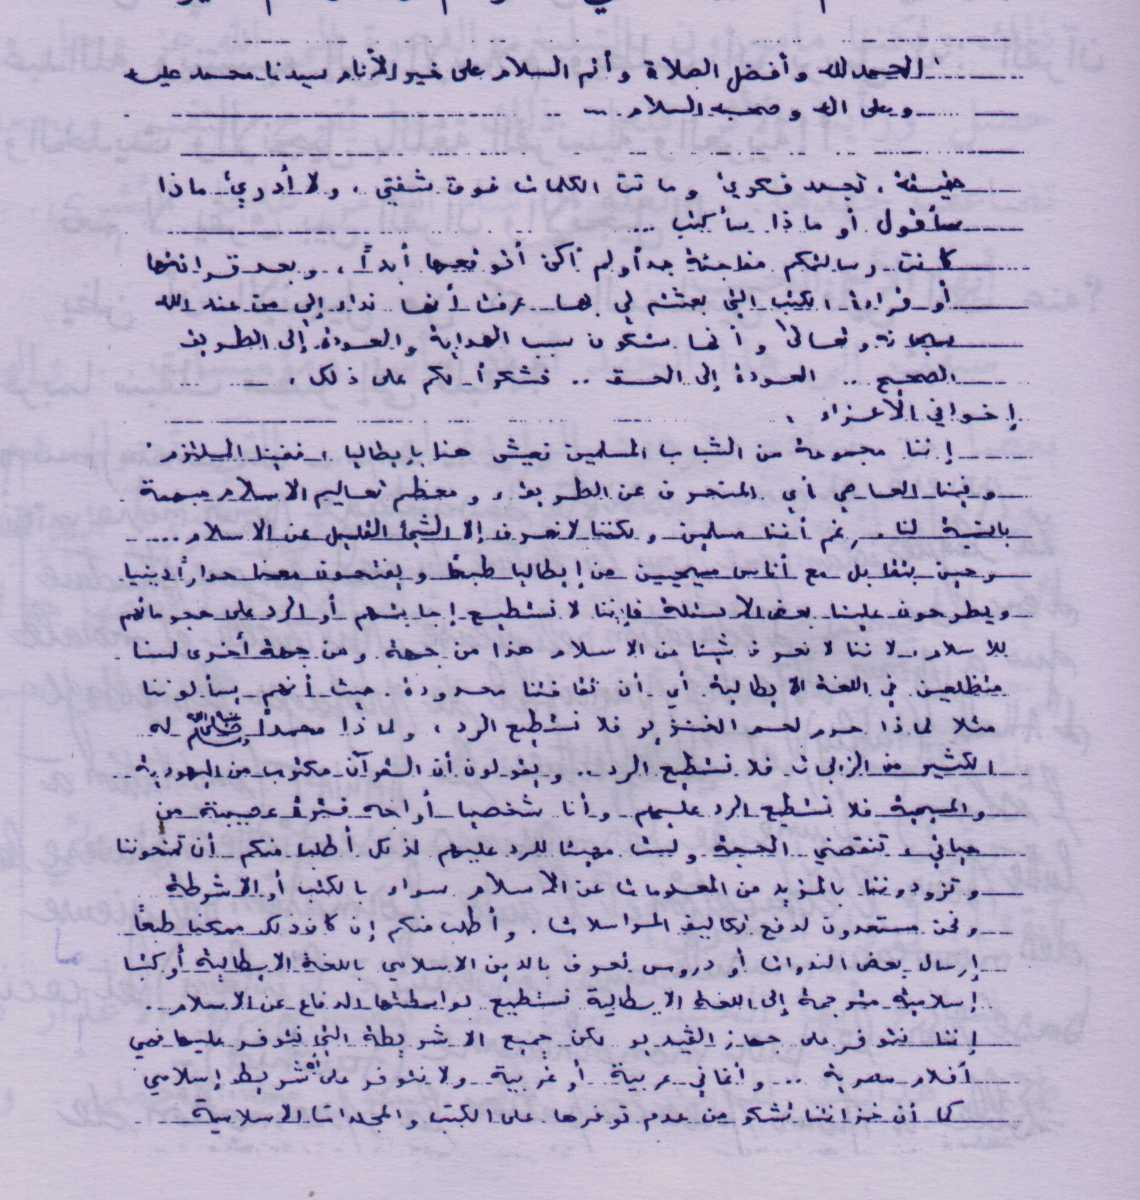 الحمد لله وأفضل الصلاة وأتم السلام على خير الأنام سيدنا محمد عليه
وعلى اله وصحبه السلام ..
حقيقة، تجمد فكري وماتت الكلمات فوق شفتي، ولا أدري ماذا
سأقول أو ماذا سأكتب ...
كانت رسالتكم مفاجئة جداً ولم أكن أتوقعها أبداً، وبعد قرائتها
أو قراءة الكتب التي بعثتم لي بها عرفت أنها نداء إلي من عند الله
سبحانه وتعالى وأنها ستكون سبب الهداية والعودة إلى الطريق
الصحيح .. العودة إلى الحق .. فشكراً لكم على ذلك.
إخواني الأعزاء،
إننا مجموعة من الشباب المسلمين نعيش هنا بإيطاليا، فمنا الملتزم
ومنا العاصي أي المنحرف عن الطريق، ومعظم تعاليم الاسلام مبهمة
بالنسبة لنا، رغم أننا مسلمين ولكننا لا نعرف إلا الشيئ القليل عن الاسلام ...
وحين نتقابل مع أناس مسيحيين من إيطاليا طبعاً ويفتحون معنا حواراً دينيا
ويطرحون علينا بعض الأسئلة فإننا لا نستطيع إجابتهم أو الرد على هجوماتهم
للاسلام لاننا لا نعرف شيئا عن الاسلام هذا من جهة ومن جهة أخرى لسنا
متطلعين في اللغة الايطالية أي أن ثقافتنا محدودة، حيث أنهم يسألوننا
مثلا لماذا حرم لحم الخنزير فلا نستطيع الرد، ولماذا محمداً ﷺ له
الكثير من الزوجات فلا نستطيع الرد .. ويقولون أن القرآن مكتوب من اليهودية
والمسيحية فلا نستطيع الرد عليهم وأنا شخصيا أواجه فترة عصيبة من
حياتي، تنقصني الحجة ولست مهيئا للرد عليهم لذلك أطلب منكم أن تعينوننا
وتزودوننا بالمزيد من المعلومات عن الاسلام سواء بالكتب أو الاشرطة
ونحن مستعدون لدفع تكاليف المراسلات. وأطلب منكم إن كان ذلك ممكنا طبعاً
إرسال بعض الندوات أو دروس تعرف بالدين الاسلامي باللغة الايطالية أو كتب
إسلامية مترجمة إلى اللغة الايطالية نستطيع بواسطتها الدفاع عن الاسلام
إننا نتوفر على جهاز الفيديو لكن جميع الاشرطة التي نتوفر عليها هي
أفلام مصرية ... وأغاني عربية أو غربية ولا نتوفر على أي شريط إسلامي
كما أن خزانتنا تشكو من عدم توفرها على الكتب والمجلدات الاسلامية